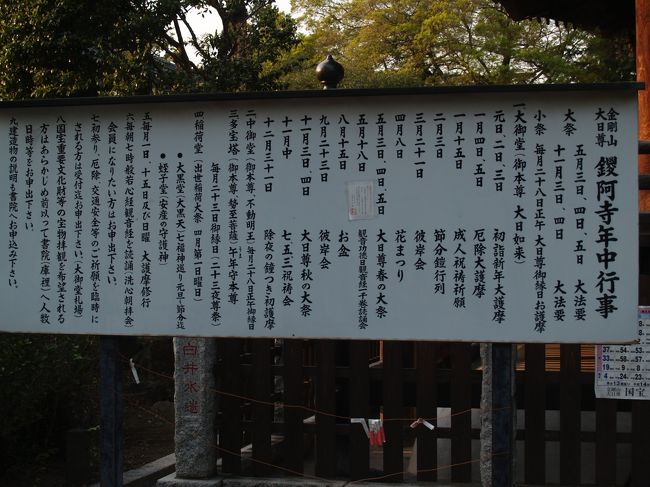 金剛山
大日尊 鑁阿寺年中行事
大祭 五月三日、四日、五日 大法要
十一月三日、四日 大法要
小祭 毎月二十八日正午 大日尊御縁日お護摩
一大御堂(御本尊 大日如来)
元日、二日、三日 初詣新年大護摩
一月四日、五日 厄除大護摩
一月十五日 成人祝祷祈願
二月三日 節分鎧行列
三月二十一日 彼岸会
四月八日 花まつり
五月三日、四日、五日 大日尊春の大祭
五月十八日 観音功徳日観音経一千巻読誦会
八月十五日 お盆
九月二十三日 彼岸会
十一月三日、四日 大日尊秋の大祭
十一月中 七五三祝祷会
十二月三十一日 除夜の鐘つき・初護摩
二中御堂(御本尊・不動明王)毎月二十八日正午御縁日
三多宝塔(御本尊 勢至菩薩)午年守本尊
毎月二十三日御縁日(二十三夜尊祭)
四稲荷堂(出世稲荷大祭 四月第一日曜日)
●大黒堂(大黒天)七福神巡り元旦〜節分会迄
●蛭子堂(安産の守護神)
五毎月一日、十五日及び日曜 大護摩修行
六毎朝七時般若心経観音経を読誦(洗心朝拝会)
会員になりたい方はお申出下さい。
七初参り、厄除、交通安全等のご祈願を臨時に
される方は受付迄お申出下さい。(大御堂札場)
八国宝重要文化財等の宝物拝観を希望される
方はあらかじめ前以って書院(庫裡)へ人数
日時等をお申出下さい。
九建造物の説明も書院へお申込み下さい。
臼井水道
国宝